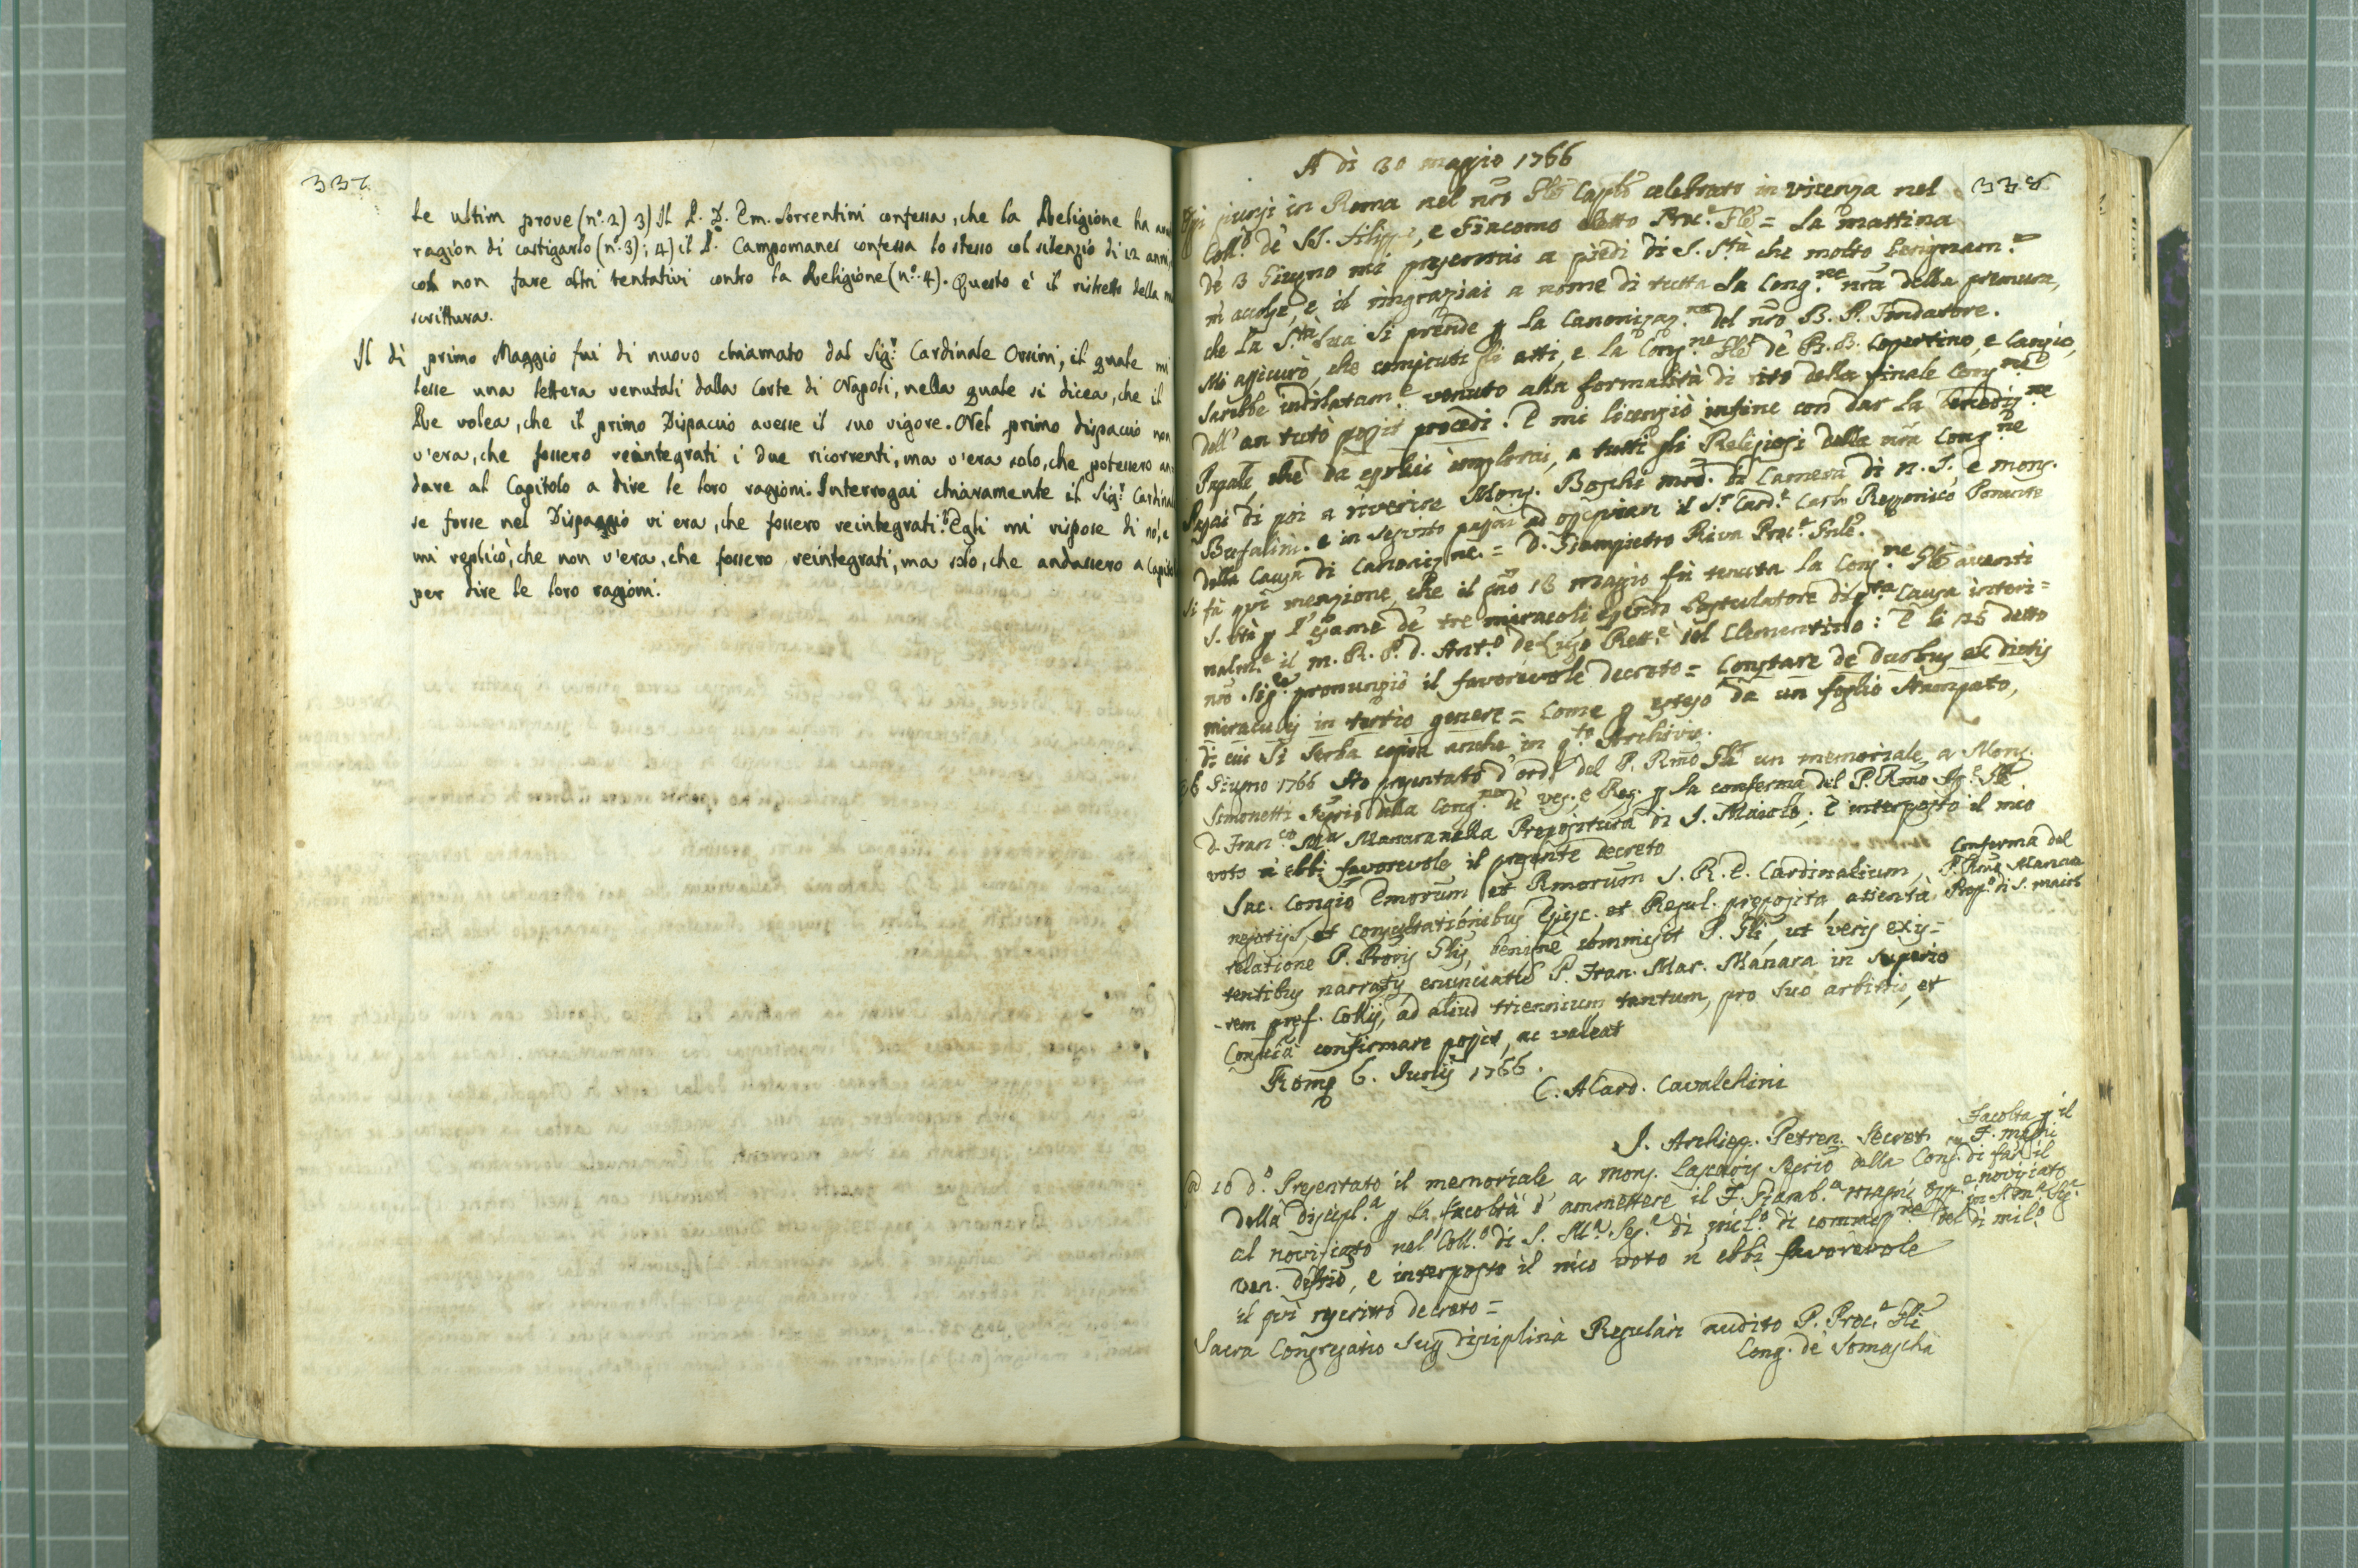 337
le ultim prove (nº. 2) 3) Il P. D. Em. Sorrentini confessa, che la Religione ha
ragion di castigarlo (nº. 3); 4) il P. Campomanes confessa lo stesso col silenzio di 12 anni,
con non fare altri tentativi contro la Religione (nº. 4). Questo è il ristretto della
scrittura.
Il dì primo Maggio fui di nuovo chiamato dal Sigr. Cardinale Orsini, il quale mi
lesse una lettera venutali dalla Corte di Napoli, nella quale si dicea, che il
Re volea, che il primo Dispaccio avesse il suo vigore. Nel primo dispaccio non
v'era, che fossero reintegrati i due ricorrenti, ma v'era solo, che potessero an
dare al Capitolo a dire le loro ragioni. Interrogai chiaramente il Sigr. Cardinal
se forse nel Dispaggio vi era, che fossero reintegrati? Egli mi rispose di nó, e
mi replicò, che non v'era, che fossero reintegrati, ma solo, che andassero a Capito
per dire le loro ragioni.
338
A dì 30 maggio 1766
Oggi giunsi in Roma nel nro Gle Caplo celebrato in vicenza nel
Collo de SS. Filippo, e Giacomo eletto Proc.e Gle = la mattina
de 3 Giugno mi presentai a piedi di S. Sta che molto benignam.e
m' accolse, e il ringraziai a nome di tutta la Cong.ne nra della premura,
che la S.tà Sua si prende p la Canonizaz.ne del nro B. P. Fondatore.
Mi assicurò, che compiuti gli atti, e la Cong.ne Gle de B. B. Copertino, e Canzio,
sarebbe intilatam.e venuto alla formalità di rito della finale Cong.ne
dell' an tuto possit procedi. E mi licenziò infine con dar la Benediz.ne
Papale che da esso lui implorai, a tutti gli Religiosi della nra Cong.ne
Passai di poi a riverire Mons. Boschi mro. di Camera di N. S. e mons.
Bufalini. e in seguito passai ad ossequiare il Sr Card.e Carlo Rezzonico Ponente
della Causa di Canonizne. = D. Giampietro Riva Proc.e Gnle.
Si fà quì menzione, che il gno 18 magio fù tenuta la Cong.ne Gle avanti
S. Stà p l' esame de tre miracoli essendo Postulatore di qta Causa interi=
nalm.e il m. R. P. D. Ant.o de Lugo Rett.e del Clementino: E li 25 detto
nro Sig.e pronunziò il favorevole decreto = Constare de duobus ex dictis
miraculis in tertio genere = come p esteso da un foglio stampato,
di cui si serba copia anche in q.to Archivio.
6 Giugno 1766 Ho presentato d'ord.e del P. Rmo Gle un memoriale a Mons.
Simonetti Segrio della Cong.ne de Ves. e Reg. p la conferma del P. Rmo
D. Fran.co Ma Manara nella Prepositura di S. Maiolo; E interposto il mio
voto n' ebbi favorevole il presente decreto
Conferma del
P. Rmo Manara
Prep.o di S. Maiolo
Sac. Congio Emorum et Rmorum S. R. E. Cardinalium,
negotijs, et consultationibus Episc. et Regul. preposita, attenta
relatione P. Proris Glis, benigne commisit P. Gli, ut veris exis=
tentibus narratis enunciatu P. Fran. Mar. Manara in superio
rem pref. Collij, ad aliud triennium tantum, pro suo arbitrio, et
Conscia confirmare possit, ac valeat
Rome 6. Junij 1766.
C. A Card. Cavalchini
J. Archiep. Petren. Secret.
Facoltà p il
F. Magni
di far il
noviciato
in S. Ma Seg.
di mil.o
10 do. Presentato il memoriale a Mons. Segrio della Cong.
della Discipl.a p la facoltà d' ammettere il F. Giamb.a Magni
al noviziato nel Coll.o di S. Ma Seg.a di mil.o di commess.ne del
Ven. Deffrio, e interposto il mio voto n' ebbi favorevole
il quì rescritto decreto =
Sacra Congregatio Sup Disciplina Regulari audito P. Proc.e Gli
Cong. de Somascha